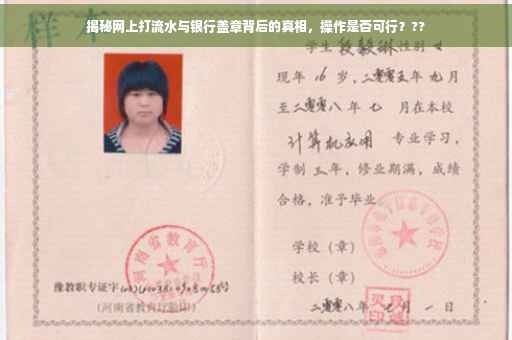 揭秘网上打流水与银行盖章背后的真相，操作是否可行？??
样本
学生 段毅琳 性别 女
现年 16 岁，二零零五年 九月
至二零零八年 七 月在本校
计算机应用 专业学习，
学制 三 年，修业期满，成绩
合格，准予毕业。
学校（章）
校长（章）
二零零八年 七 月 一 日
河南省教育厅
豫教职专证字
（河南省教育厅验印）